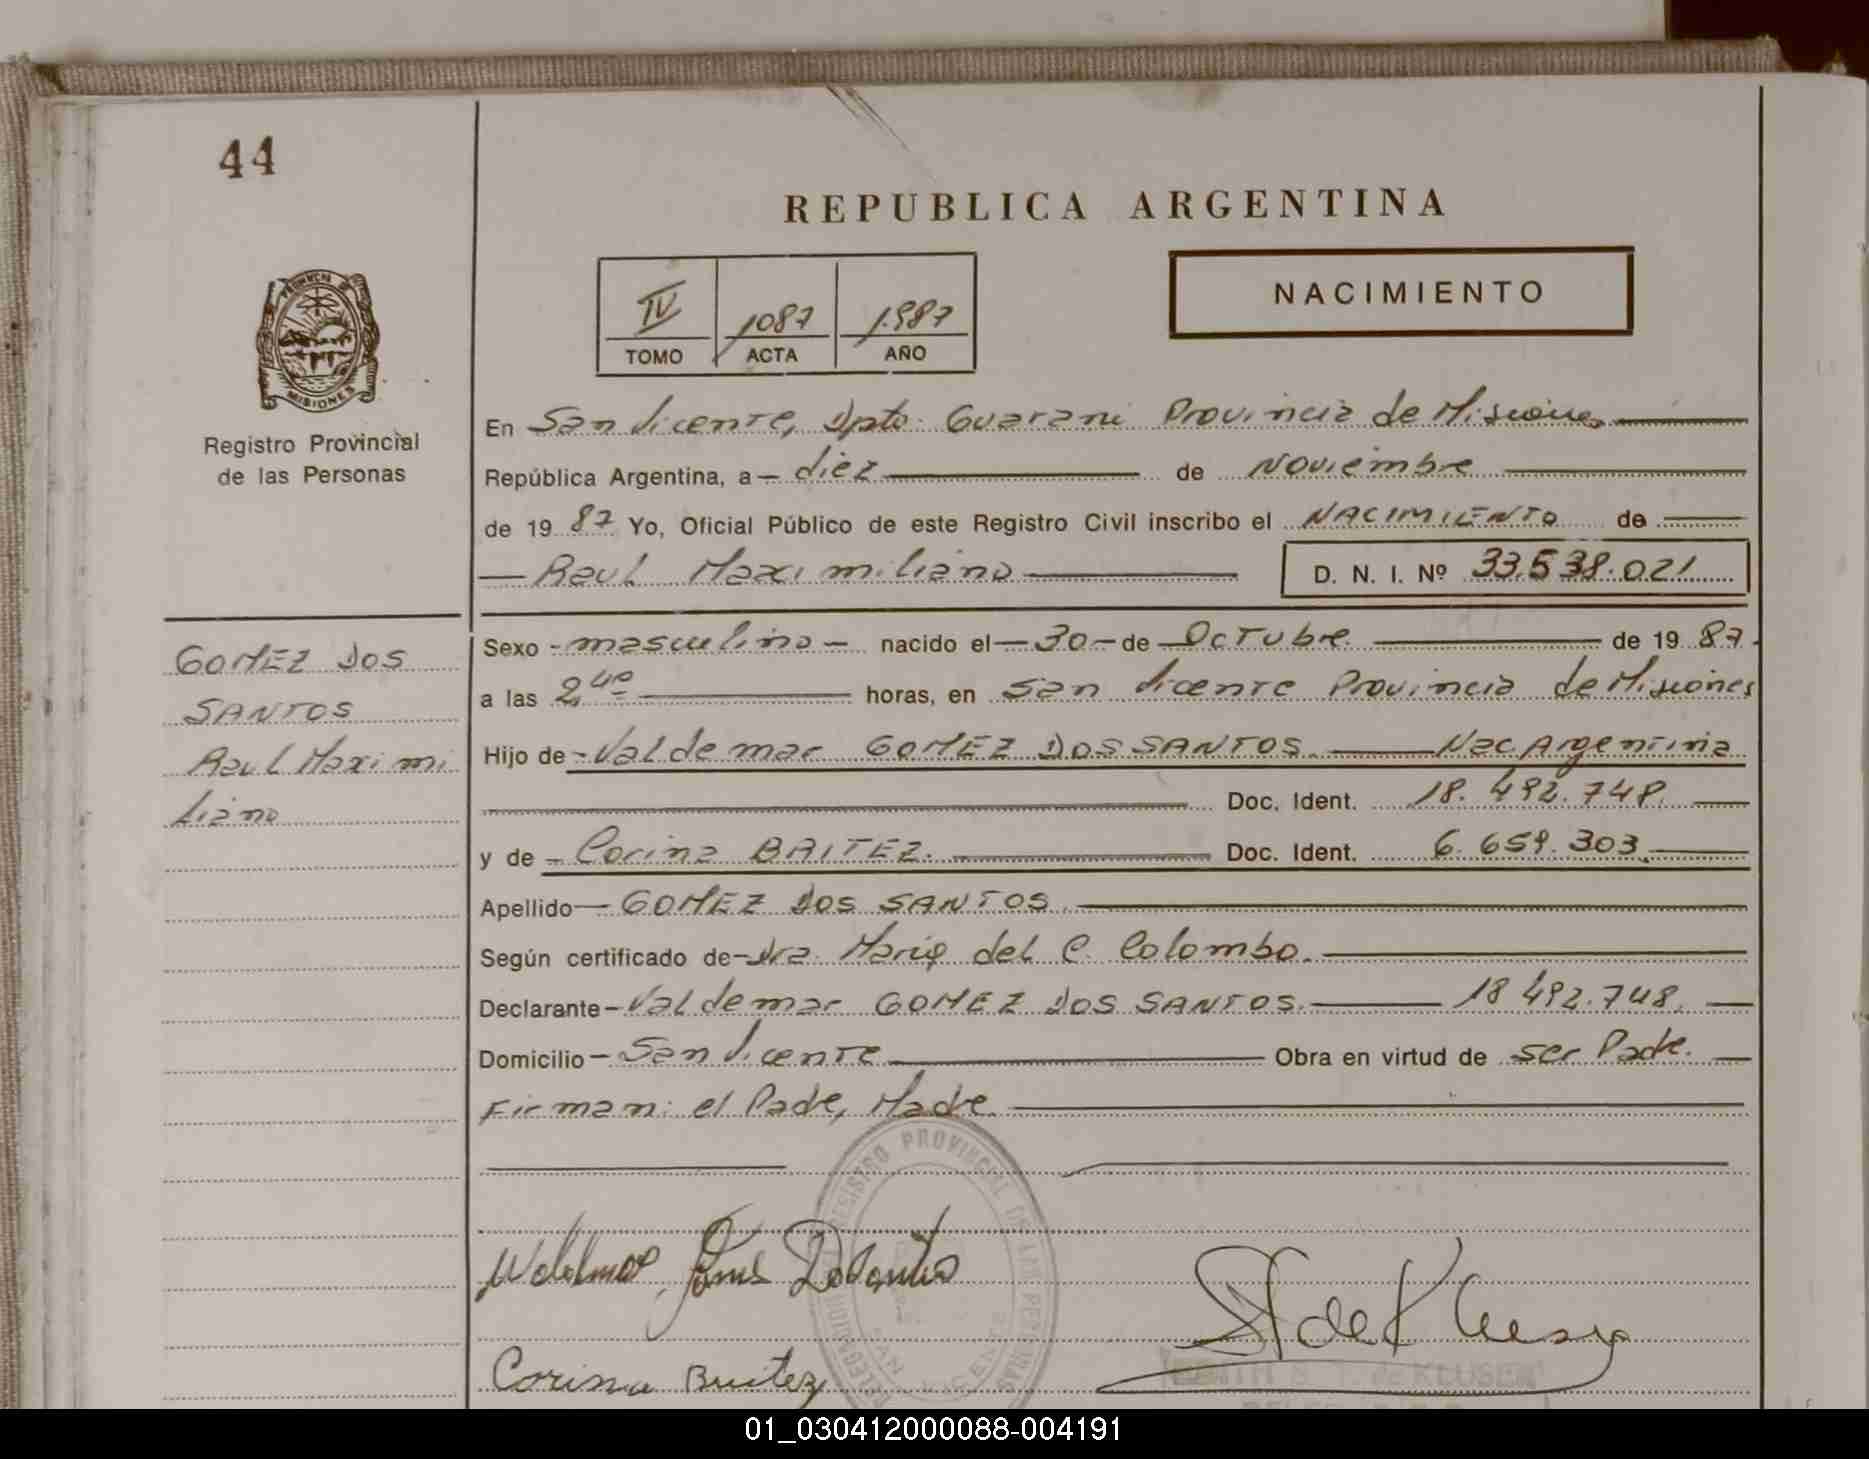 44
REPUBLICA ARGENTINA
PROVINCIA DE
MISIONES
Registro Provincial
de las Personas
IV 1087 1.987
TOMO ACTA AÑO
NACIMIENTO
En San Vicente, Dpto. Guarani Provincia de Misiones
República Argentina, a diez de Noviembre
de 19 87 Yo, Oficial Público de este Registro Civil inscribo el NACIMIENTO de
Raul Maximiliano D. N. I. Nº 33.538.021
GOMEZ DOS
SANTOS
Raul Maximi
liano
Sexo - masculino - nacido el - 30 - de Octubre de 19 87.
a las 2 40 horas, en San Vicente Provincia de Misiones
Hijo de - Valdemar GOMEZ DOS SANTOS. Nac Argentina
Doc. Ident. 18.492.748.
y de - Corina BRITEZ. Doc. Ident. 6.659.303.
Apellido - GOMEZ DOS SANTOS.
Según certificado de - Dra. Maria del C. Colombo.
Declarante - Valdemar GOMEZ DOS SANTOS. 18 492.748.
Domicilio - San Vicente Obra en virtud de ser Padre.
Firman: el Padre, Madre.
REGISTRO PROVINCIAL DE LAS PERSONAS
SAN VICENTE
Corina Britez
de KLUSER
01_030412000088-004191